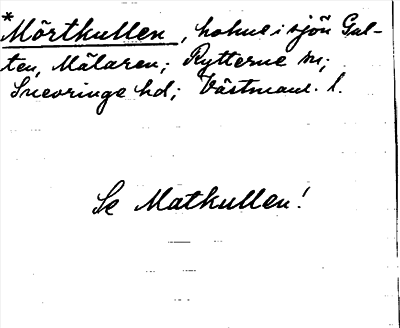 *Mörtkullen, holme i sjön Gal-
ten, Mälaren; Rytterne sn;
Snevringe hd; Västmanl. l.
Se Matkullen!